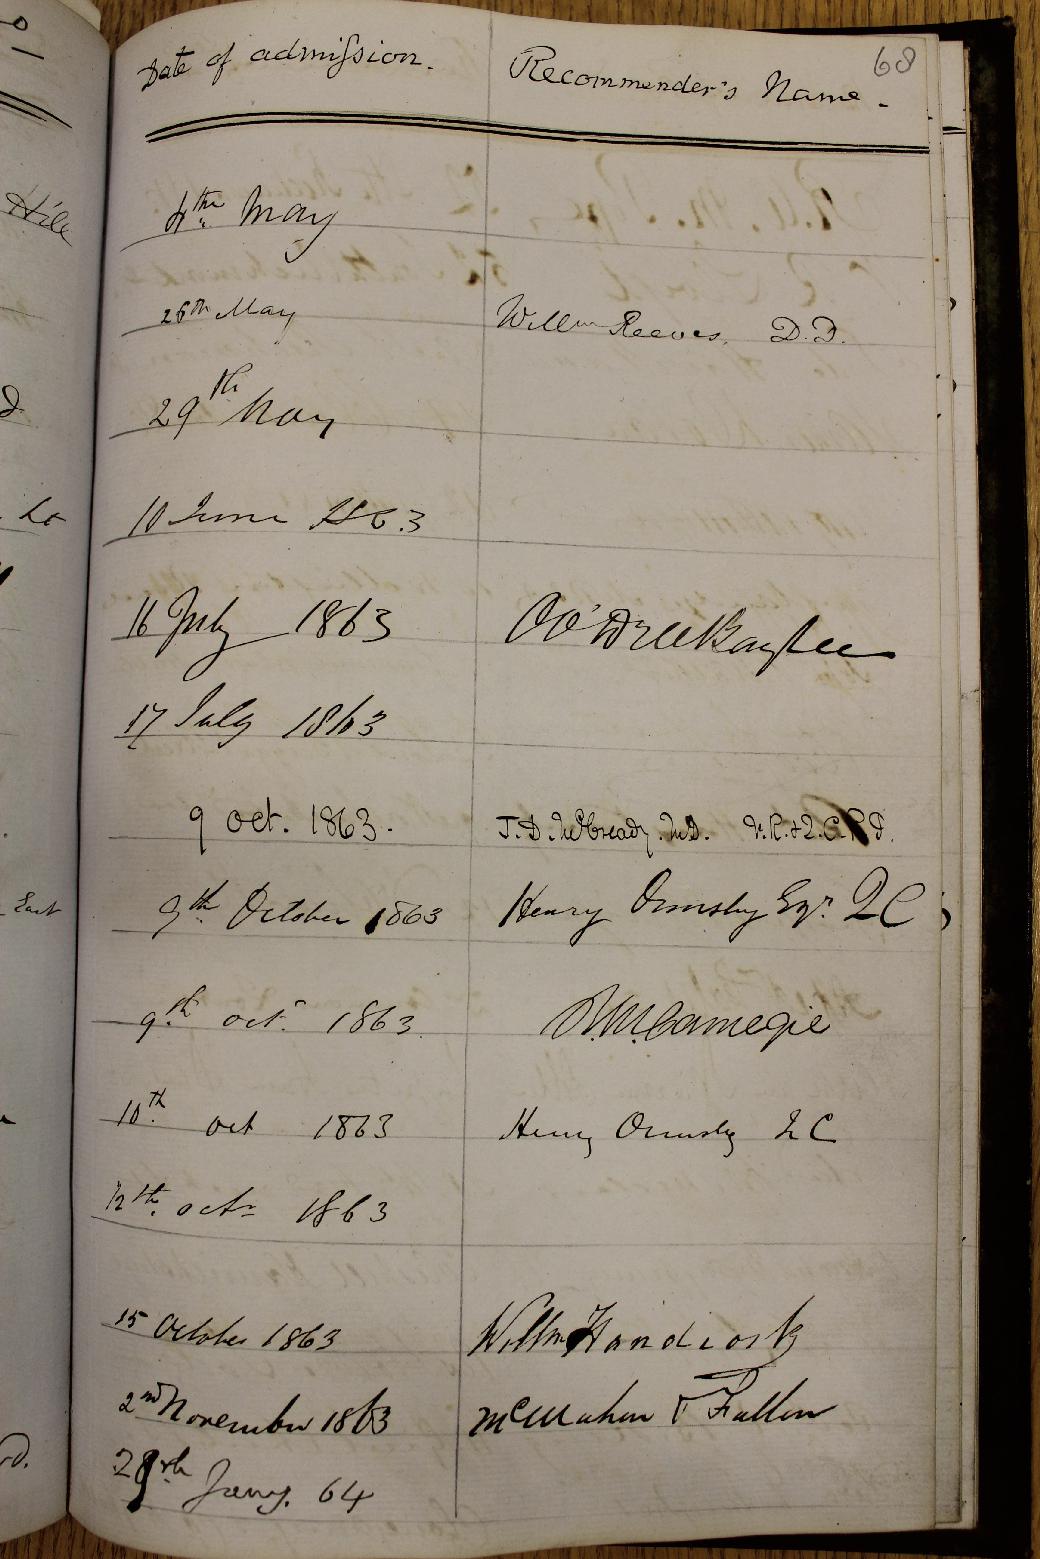 68
Date of admission. Recommender's Name.
4th May
26th May Willm Reeves, D.D.
29th May
10 June 1863
16 July 1863
17 July 1863
9 Oct. 1863. J. D. McCready. M.D.
9th October 1863 Henry Ormsby Esqr. QC
9th Octr 1863 Carnegie
10th Oct 1863 Henry Ormsby QC
12th Octr 1863
15 October 1863 Willm Handcock
2nd November 1863 McMahon & Fallon
Jany. 64
Hill
Lo
East